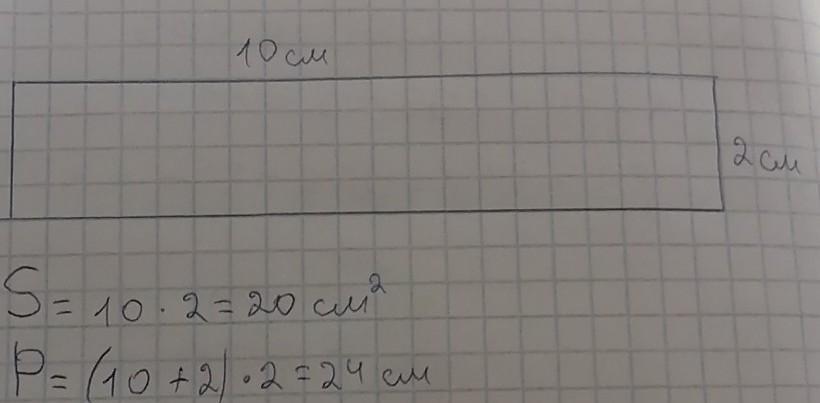 10 см
2 см
S = 10 · 2 = 20 см²
P = (10 + 2) · 2 = 24 см